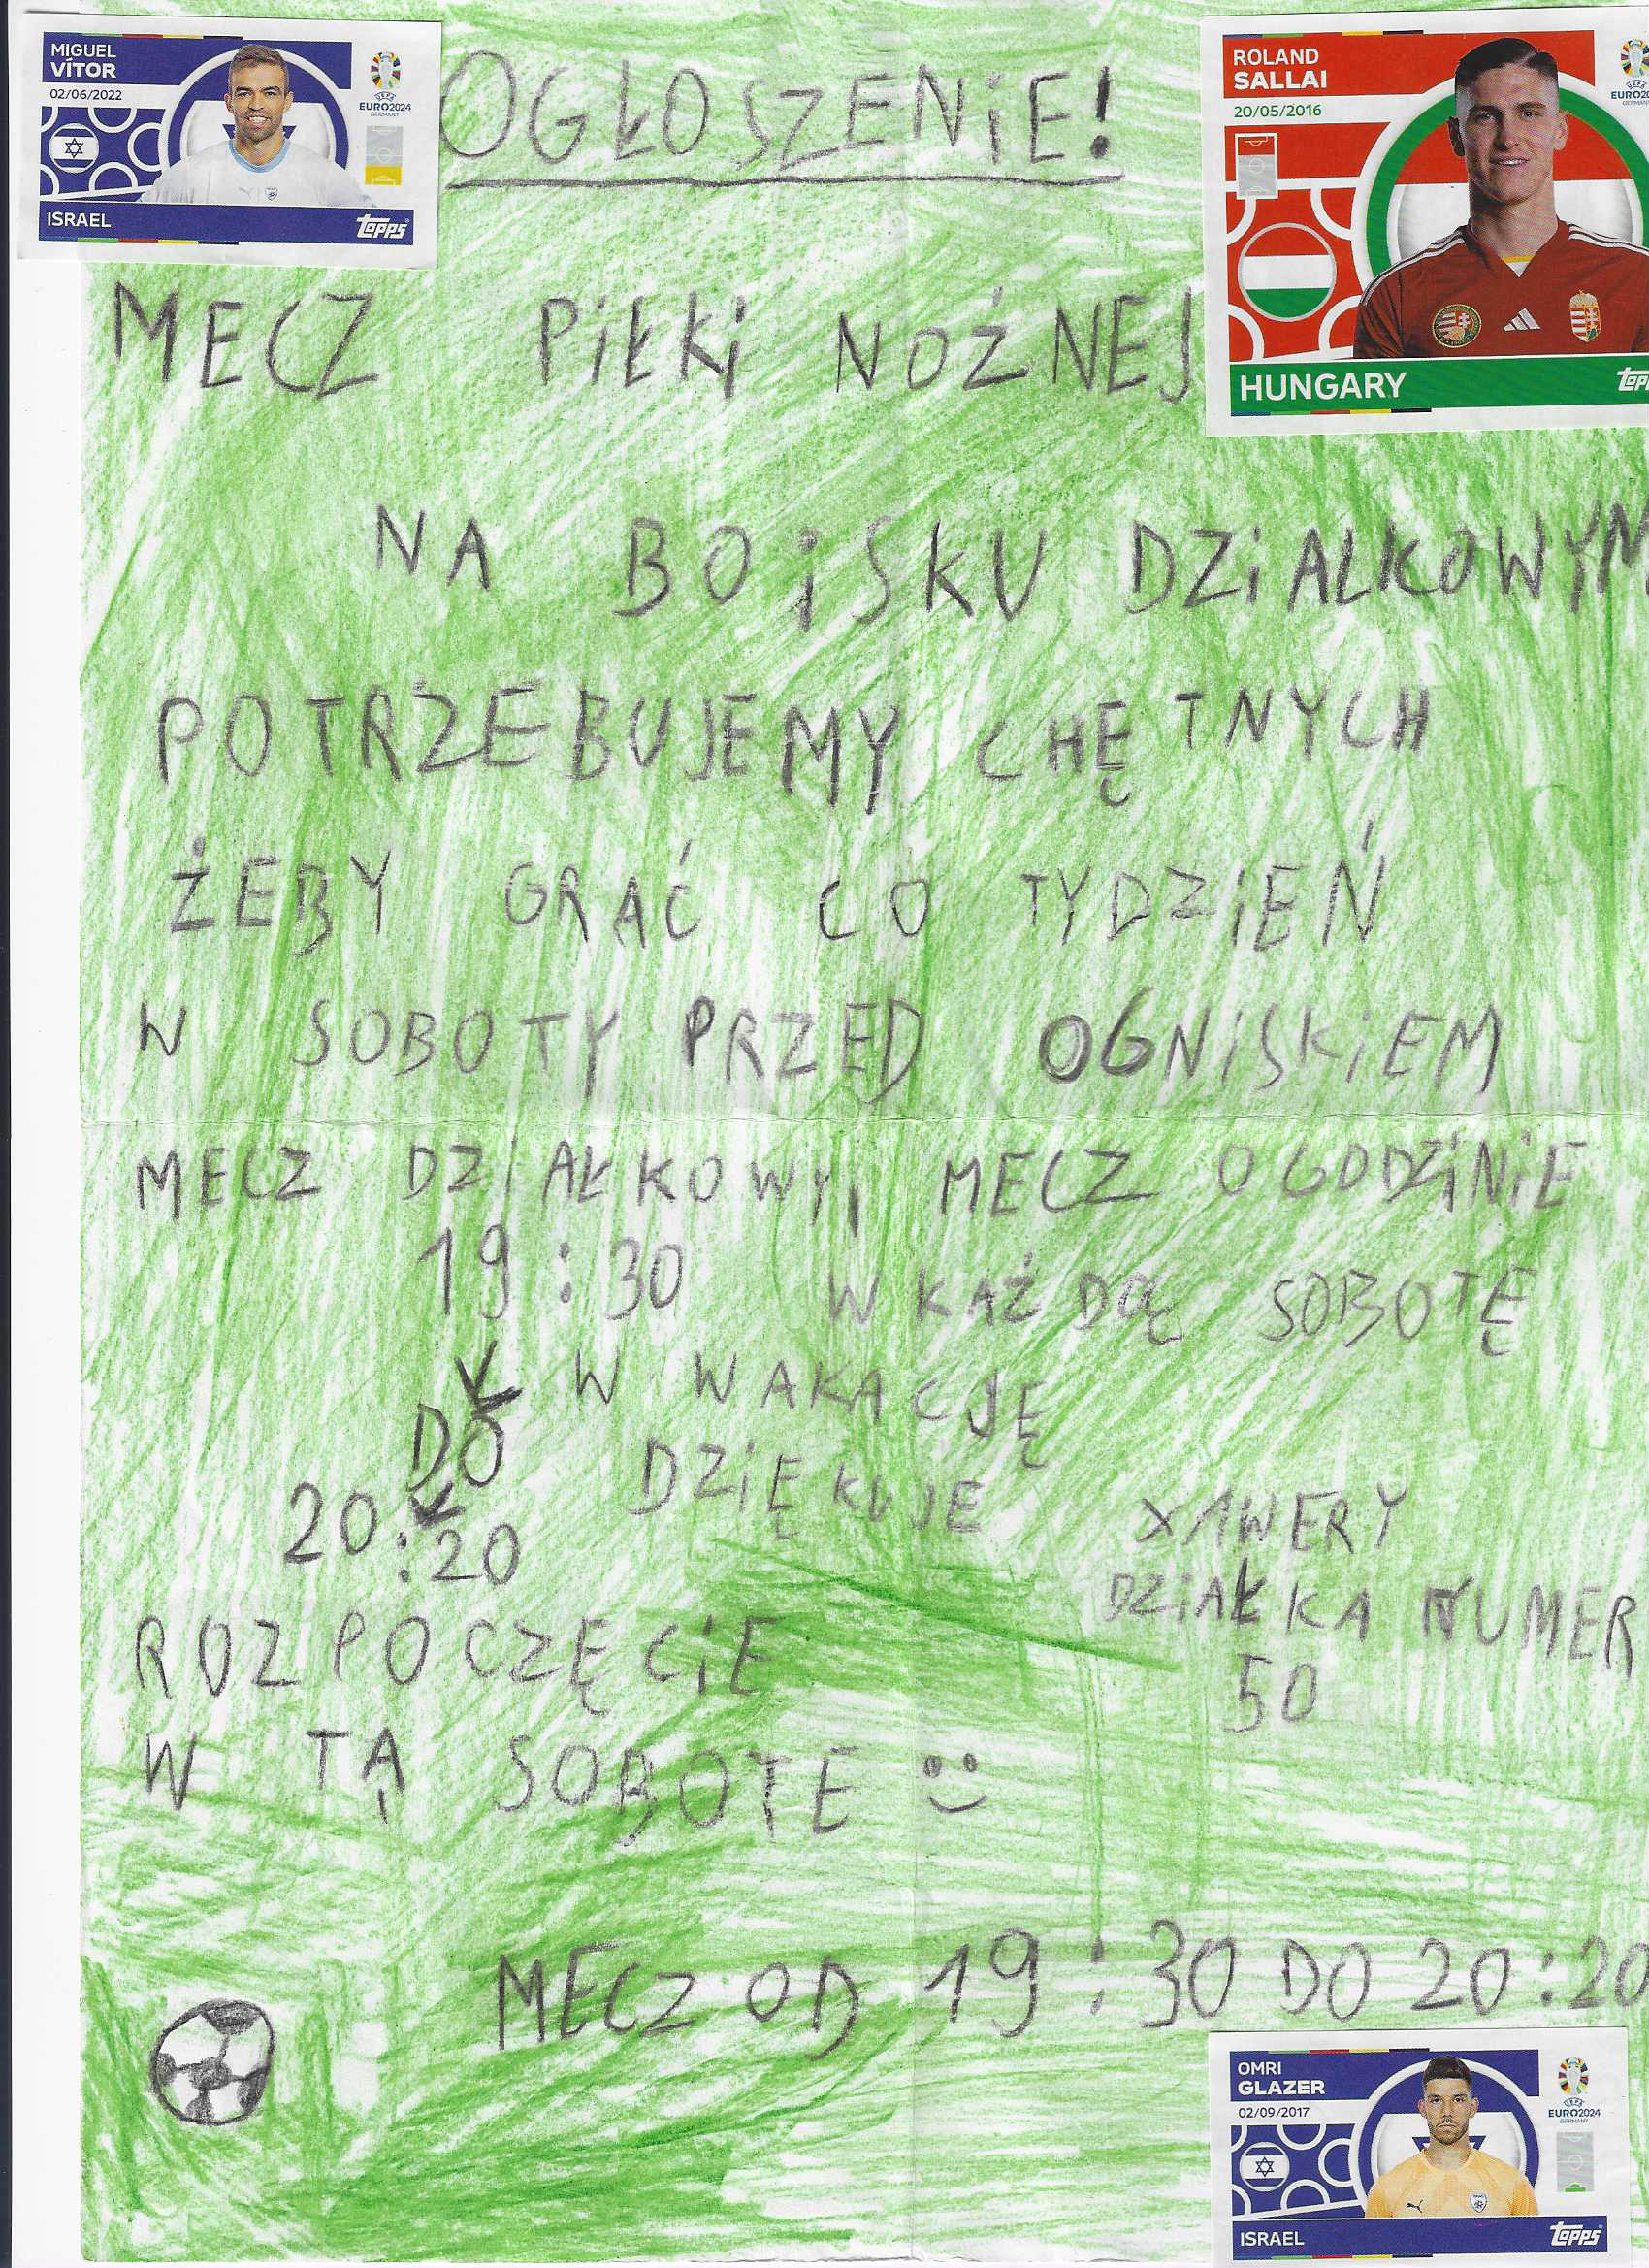 MIGUEL
VÍTOR
02/06/2022
UEFA
EURO2024
GERMANY
ISRAEL
topps
OGŁOSZENiE!
ROLAND
SALLAI
20/05/2016
HUNGARY
MECZ PiŁKi NOŻNEJ
NA BOiSKU DZiALKOWYM
POTRZEBUJEMY CHĘTNYCH
ŻEBY GRAĆ CO TYDZiEŃ
W SOBOTY PRZED OGNiSKiEM
MECZ DZiAŁKOWY, MECZ O GODZiNiE
19:30 W KAŻDĄ SOBOTĘ
W WAKACJĘ
DO
DZiĘKUJE
20:20
XAWERY
DZiAŁKA NUMER
50
ROZPOCZĘCiE
W TĄ SOBOTE
MECZ OD 19:30 DO 20:20
OMRI
GLAZER
02/09/2017
UEFA
EURO2024
GERMANY
ISRAEL
topps